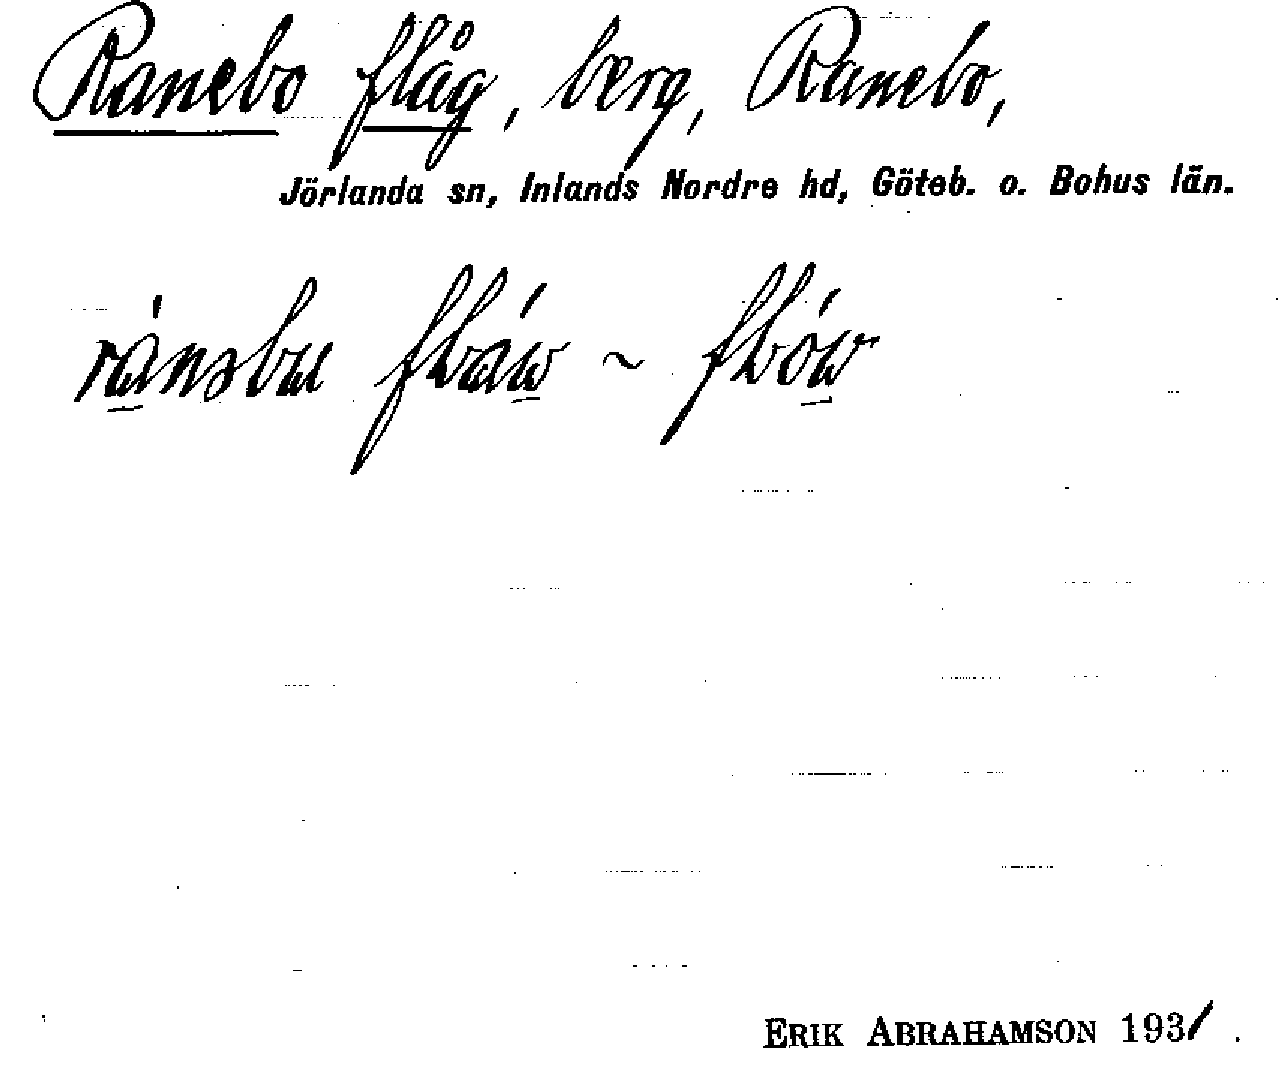 Ranebo flåg, berg, Ranebo,
Jörlanda sn, Inlands Nordre hd, Göteb. o. Bohus län.
~
ERIK ABRAHAMSON 1931.